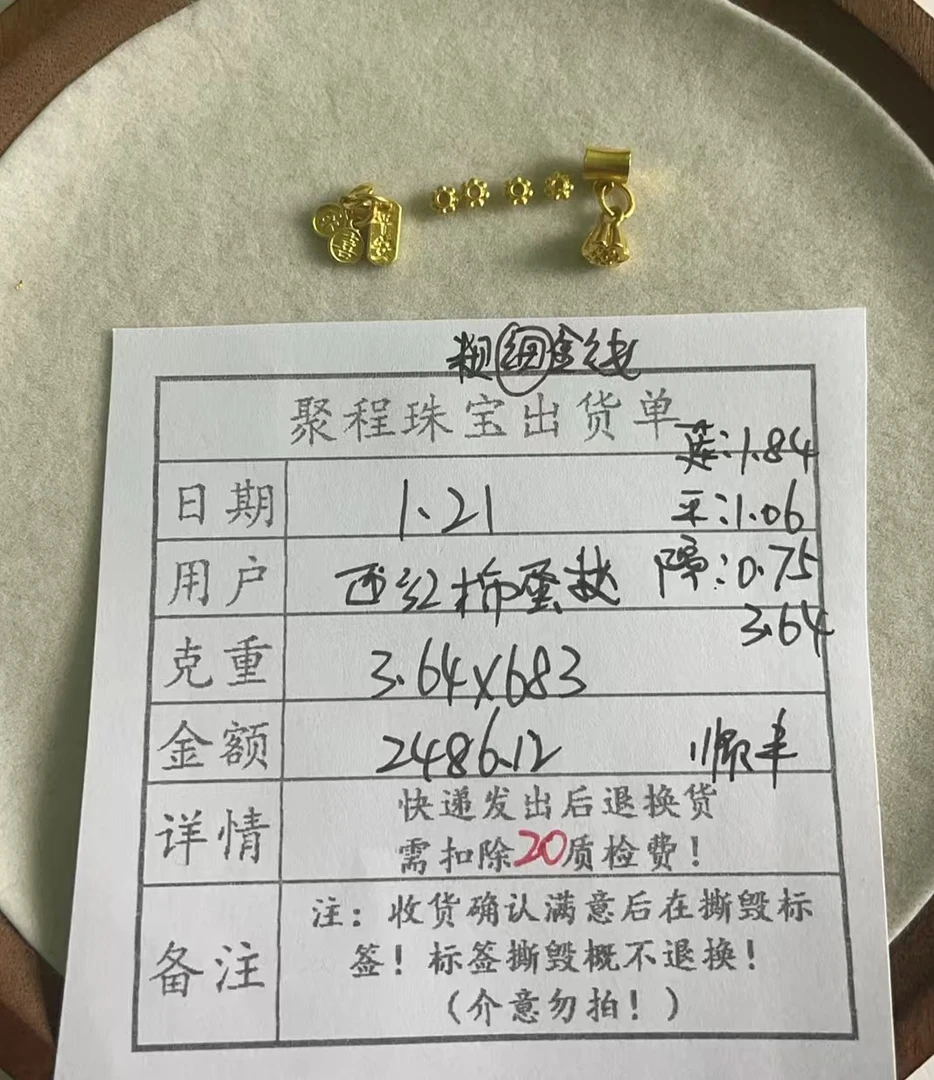 粗细金线
聚程珠宝出货单
莲:1.84
日期 1.21
平:1.06
用户 西红柿蛋挞
隔:0.75
3.64
克重 3.64x683
金额 2486.12 顺丰
详情 快递发出后退换货
需扣除20质检费!
备注 注:收货确认满意后在撕毁标
签!标签撕毁概不退换!
(介意勿拍!)